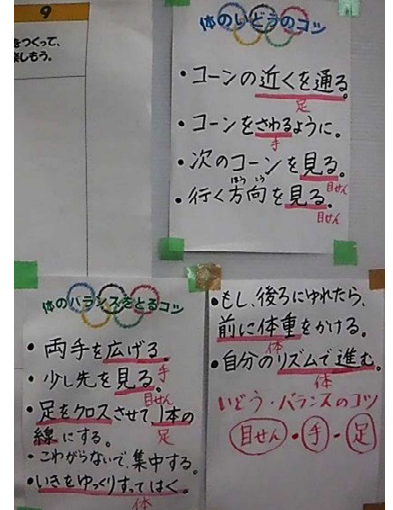 9
をつくって、
楽しもう。
体のいどうのコツ
・コーンの近くを通る。
足
・コーンをさわるように。
手
・次のコーンを見る。
目せん
・行く方向を見る。
ほう こう
目せん
体のバランスをとるコツ
・両手を広げる。
手
・少し先を見る。
目せん
・足をクロスさせて1本の
足
線にする。
・こわがらないで、集中する。
・いきをゆっくりすってはく。
体
・もし、後ろにゆれたら、
前に体重をかける。
体
・自分のリズムで進む。
体
いどう・バランスのコツ
目せん・手・足